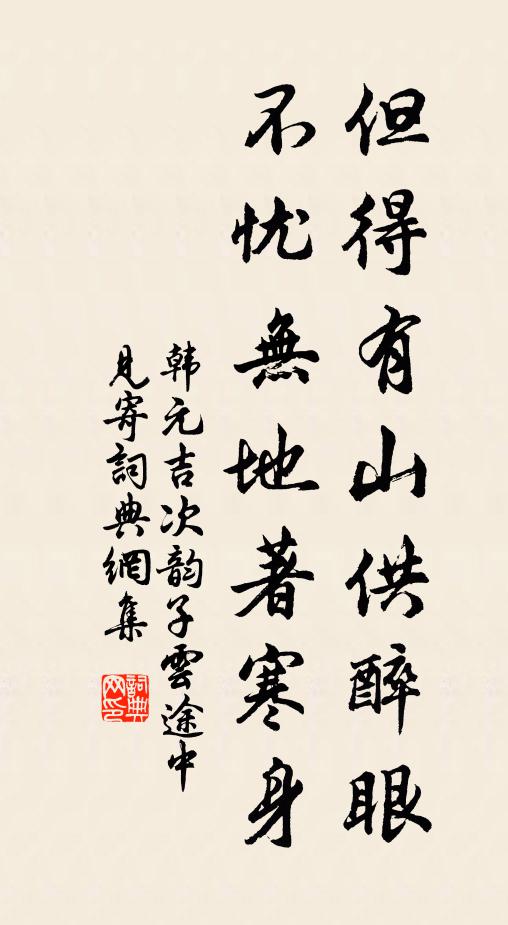 但得有山供醉眼
不忧無地著寒身
韩元吉次韵子雲途中
見寄詞典網集
詞典网印